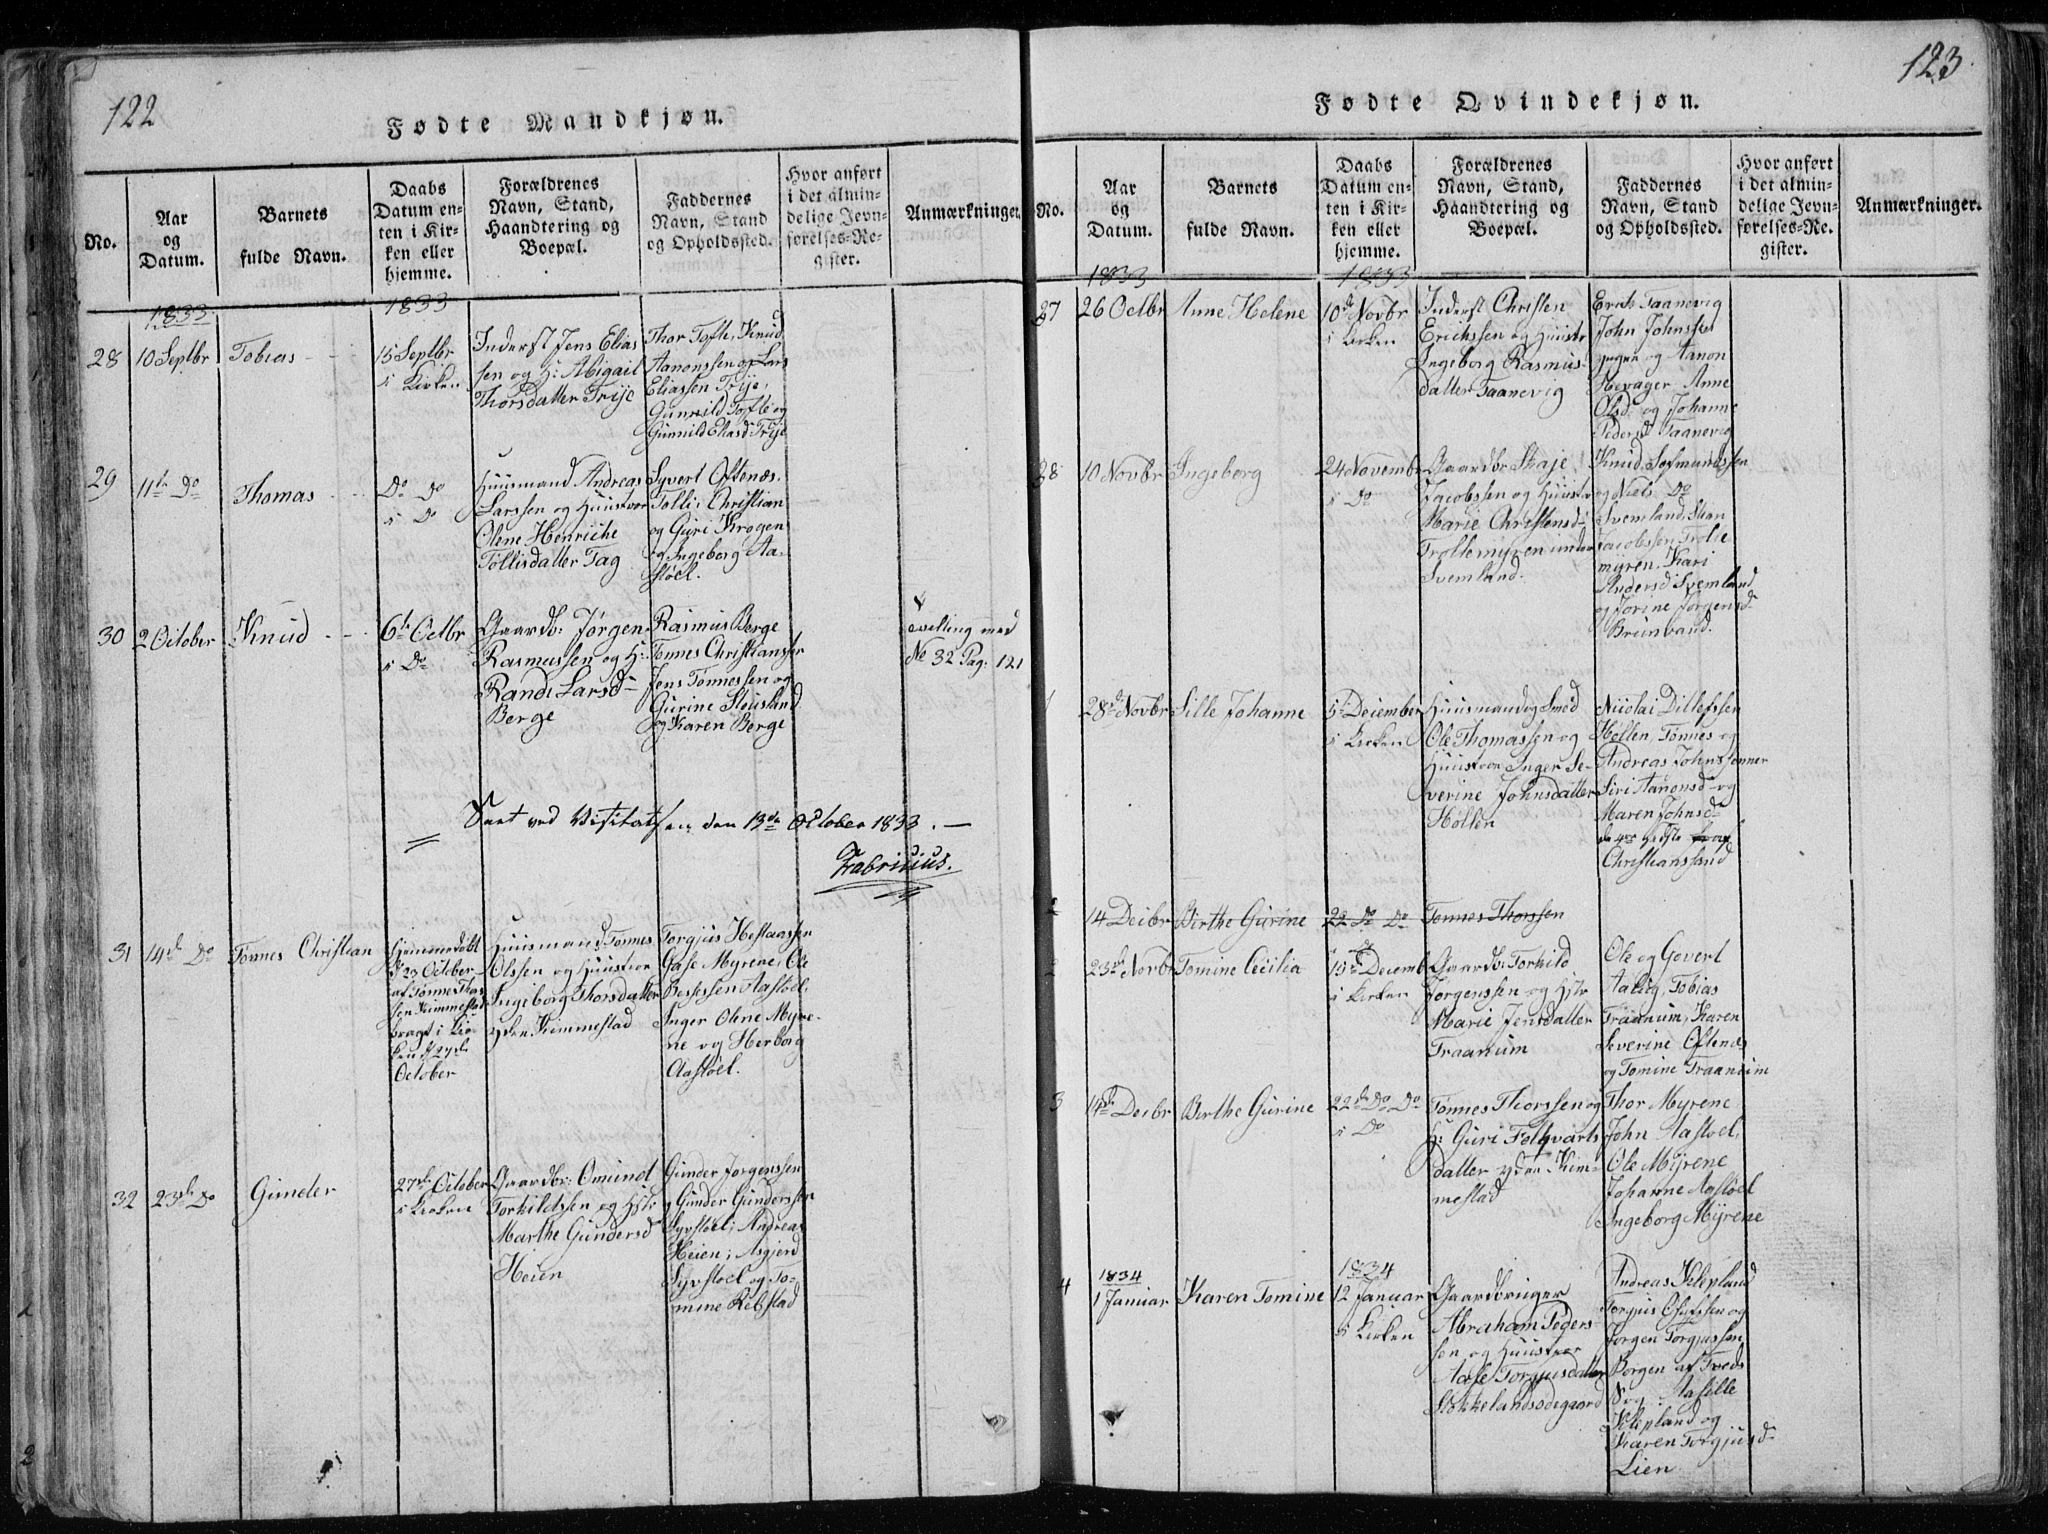 122
Fødte Mandkjøn.
No.
Aar
og
Datum.
Barnets
fulde Navn.
Daabs
Datum en-
ten i Kir-
ken eller
hjemme.
Forældrenes
Navn, Stand,
Haandtering og
Boepæl.
Faddernes
Navn, Stand
og Opholdssted.
Hvor anført
i det almin-
delige Jevn-
førelses-Re-
gister.
Anmærkninger.
1833
1833
28
10 Septbr
Tobias
15 Septbr
i Kirken
Inderst Jens Elias
sen og H: Abigail
Thorsdatter Trije
Thor Tofte, Knud
Aanonssen og Lars
Eliassen Trije,
Gunnild Tofte og
Gunnild Eliasd Trije
29
11te Do
Thomas
Do Do
i Do
Huusmand Andreas
Larssen og Huustroe
Olene Henriche
Tollisdatter Tag
Syvert Oftenæs.
Tolli, Christian
og Guri Krogen
og Ingeborg Aa-
støel.
30
2 October
Knud
6te Octbr
i Do
Gaardb: Jørgen
Rasmussen og H:
Randi Larsd
Berge
Rasmus Berge
Tønnes Christianssen
Jens Tønnessen og
Gurine Stousland
og Karen Berge
tvilling med
No 32 Pag: 121
Seet ved Visitatsen den 13de October 1833.
Fabricius.
31
14de Do
Tønnes Christian
hjemmedøbt
d 23 October
af Tønnes Thors
sen Kimmestad
bragt i Kir-
ken d 27de
October
Huusmand Tønnes
Olssen og Huustroe
Ingeborg Thorsdatter
ydenKimmestad
Torgjus
Myrene, Ole
Aastøel,
Inger Olene Myre-
ne og Herborg
Aastøel.
32
23de Do
Gunder
27de October
i Kirken
Gaardbr: Omund
Torkildssen og Hstr
Marthe Gundersd
Heien
Gunder Jørgenssen
og Gunder Gunderssen
Syvstøel; Andreas
Heien; Asgjerd
Syvstoel og To-
mine Rebstad
123
Fødte Qvindekjøn.
No.
Aar
og
Datum.
Barnets
fulde Navn.
Daabs
Datum en-
ten i Kir-
ken eller
hjemme.
Forældrenes
Navn, Stand,
Haandtering og
Boepæl.
Faddernes
Navn, Stand
og Opholdssted.
Hvor anført
i det almin-
delige Jevn-
førelses-Re-
gister.
Anmærkninger.
1833
1833
37
26 Octbr
Anne Helene
10d Novbr
i Kirken
Inderst Christen
Erichssen og Huustr
Ingeborg Rasmus-
datter Taanevig
Erich Taanevig
John Johnssen
og Aanon
Hevager, Anne
Olsd: og Johanne
Pedersd Taanevig
38
10 Novbr
Ingeborg
24 Novembr
i Do
Gaardbr Skaje
Jacobssen og Huustr
Marie Christensd
Trollemyren under
Svemland.
Knud Sofmundssen
og Niels Do
Svemland,
Jacobssen Trolle
myren. Kari
Andersd Svemland
og Jorine Jorgensd
Brunvand.
1
28de Novbr
Sille Johanne
5te December
i Kirken
Huusmand og Smed
Ole Thomassen og
Huustroe Inger Se-
verine Johnsdatter
Høllen
Nicolai Ditlefssen
Høllen, Tønnes og
Andreas Johnssønner
Siri Aanonsd og
Maren Johnsd
de 4re sidste
Christianssand
2
14 Decbr
Birthe Gurine
22 Do Do
Tønnes Thorssen
2
23de Novbr
Tomine Cecilia
15de Decemb
i Kirken
Gaardb: Torkild
Jørgenssen og Hstr
Marie Jensdatter
Traanum
Ole og Govert
Aalug, Tobias
Traanum, Karen
Severine Oftenæs
og Tomine Traanum
3
14de Decbr
Birthe Gurine
22de Do Do
i Do
Tønnes Thorssen og
H: Guri Folqvarts
datter yden Kim-
mestad
Thor Myrene,
John Aastoel,
Ole Myrene
Johanne Aastoel
Ingeborg Myrene
4
1834
1 Januar
Karen Tomine
1834
12 Januar
i Kirken
Gaardbruger
Abraham Peders-
sen og Huustroe
Aase Torgjusdatter
Stokkelandsødegaard
Andreas Klepland
Torgius Olufssen og
Jorgen Torgjussen
Borgen af Tveds
Sogn. Aasille
Klepland og
Karen Torgjusd
Lien